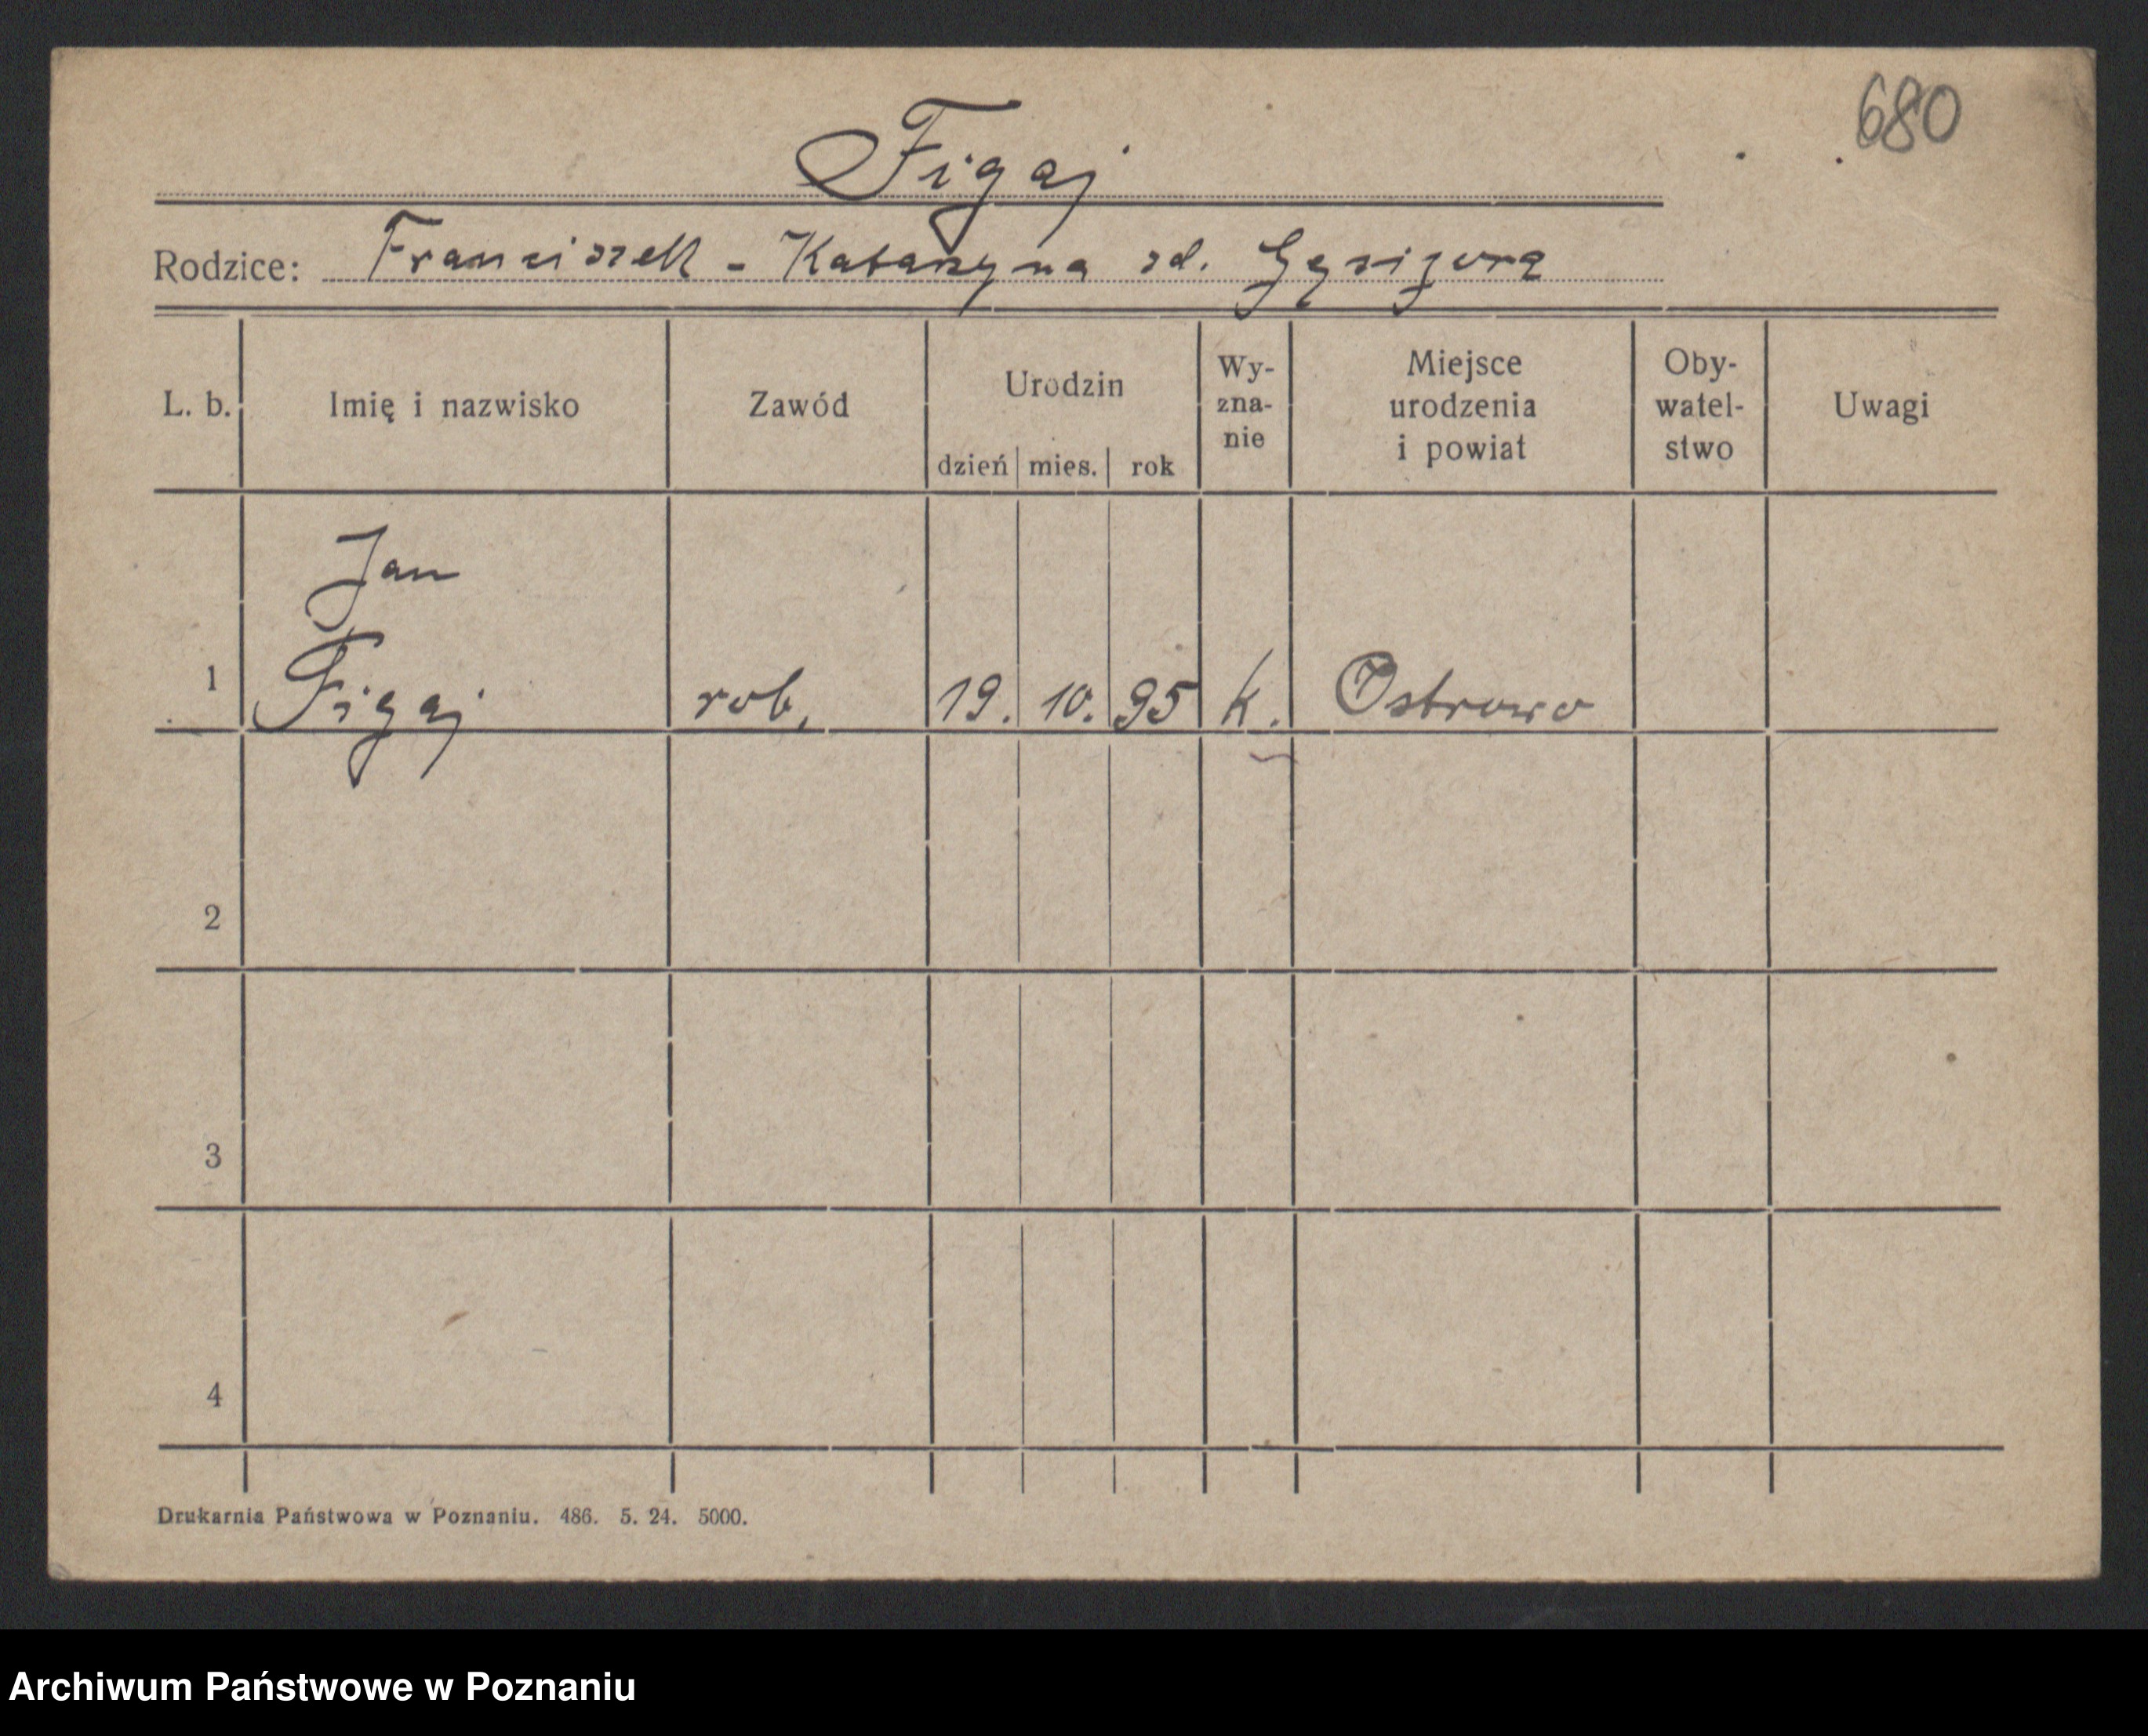 680
Figaj
Rodzice: Franciszek - Katarzyna zd.
L. b. Imię i nazwisko Zawód Urodzin dzień mies. rok Wy-zna-nie Miejsce urodzenia i powiat Oby-watel-stwo Uwagi
Jan
1 Figaj rob. 19. 10. 95 k. Ostrowo
2
3
4
Drukarnia Państwowa w Poznaniu. 486. 5. 24. 5000.
Archiwum Państwowe w Poznaniu